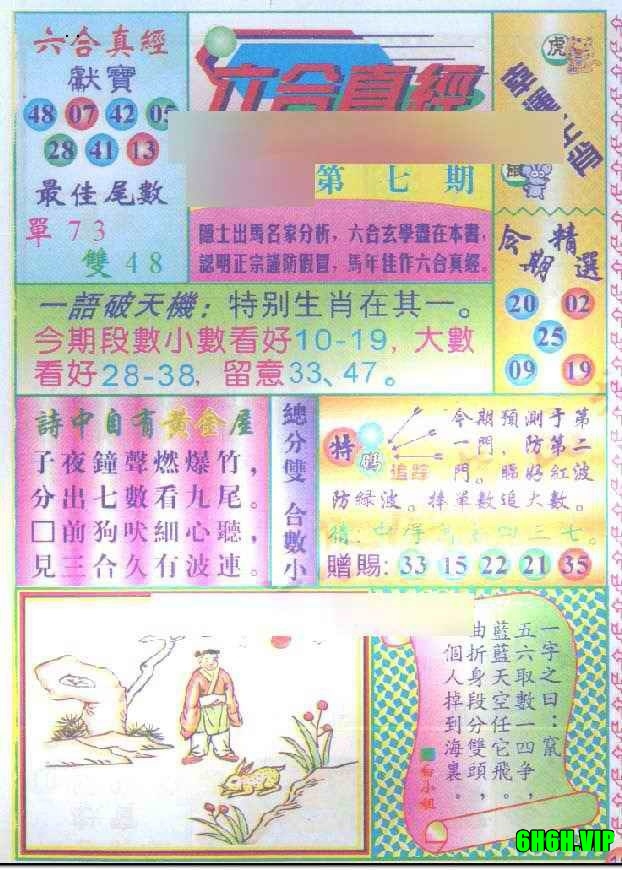 六合真經
獻寶
48 07 42 05
28 41 13
最佳尾數
單 73
雙 48
六合真經
第七期
隱士出馬名家分析，六合玄學盡在本書，
認明正宗謹防假冒，馬年佳作六合真經。
虎
鼠
今期精選
20 02
25
09 19
一語破天機：特别生肖在其一。
今期段數小數看好10-19，大數
看好28-38，留意33、47。
詩中自有黃金屋
子夜鐘聲燃爆竹，
分出七數看九尾。
□前狗吠細心聽，
見三合久有波連。
總分雙 合數小
特碼
追踪
今期預測于第
一門，防第二
門。睇好紅波
防綠波。捧單數追大數。
四三七。
贈賜：33 15 22 21 35
一字之曰：竄
五六取數一四爭，
藍藍天空任它飛。
曲折身段分雙頭，
個人掉到海裏。
白小姐
6H6H.VIP